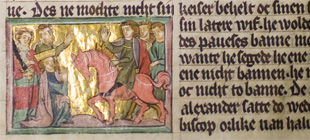 ue. Des ne mochte nicht sin
keiser behelt oc sinen
sin latere wif. he wolde
des paueses banne nie
wante he segede he ene
ene nicht bannen. he n
oc nicht to banne. De
alexander satte do wed
biscop oilike van hal